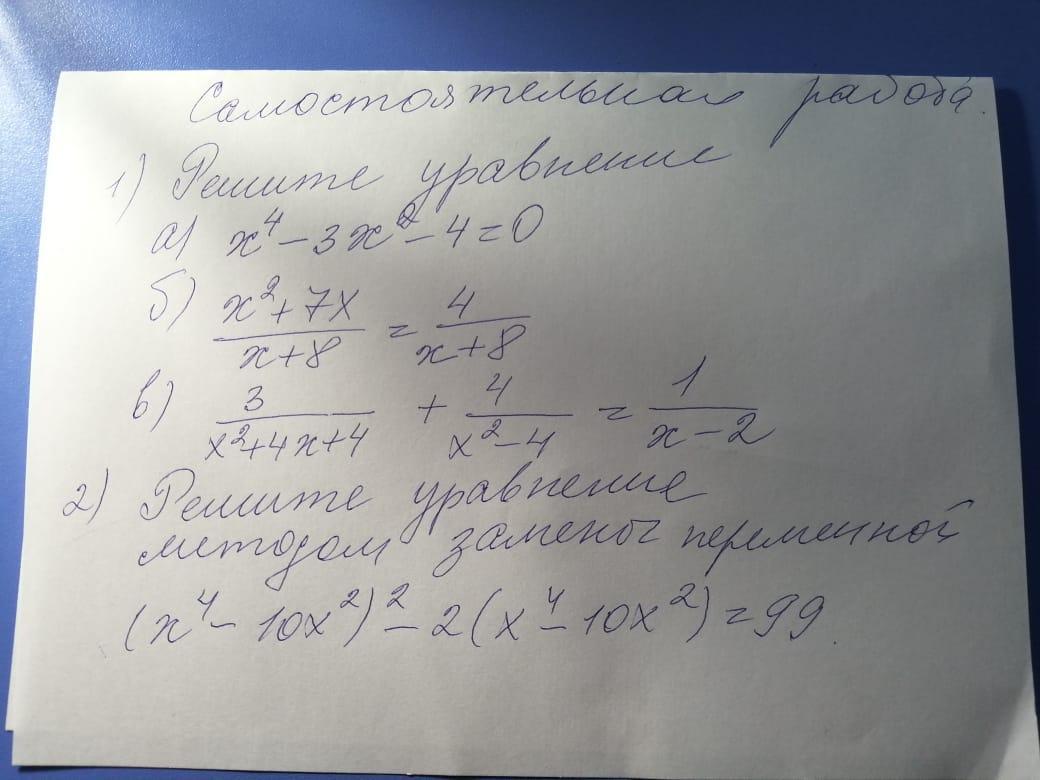 Самостоятельная работа.
1) Решите уравнение
а) x⁴ - 3x² - 4 = 0
б) (x² + 7x)/(x + 8) = 4/(x + 8)
в) 3/(x² + 4x + 4) + 4/(x² - 4) = 1/(x - 2)
2) Решите уравнение
методом замены переменной
(x⁴ - 10x²)² - 2(x⁴ - 10x²) = 99.